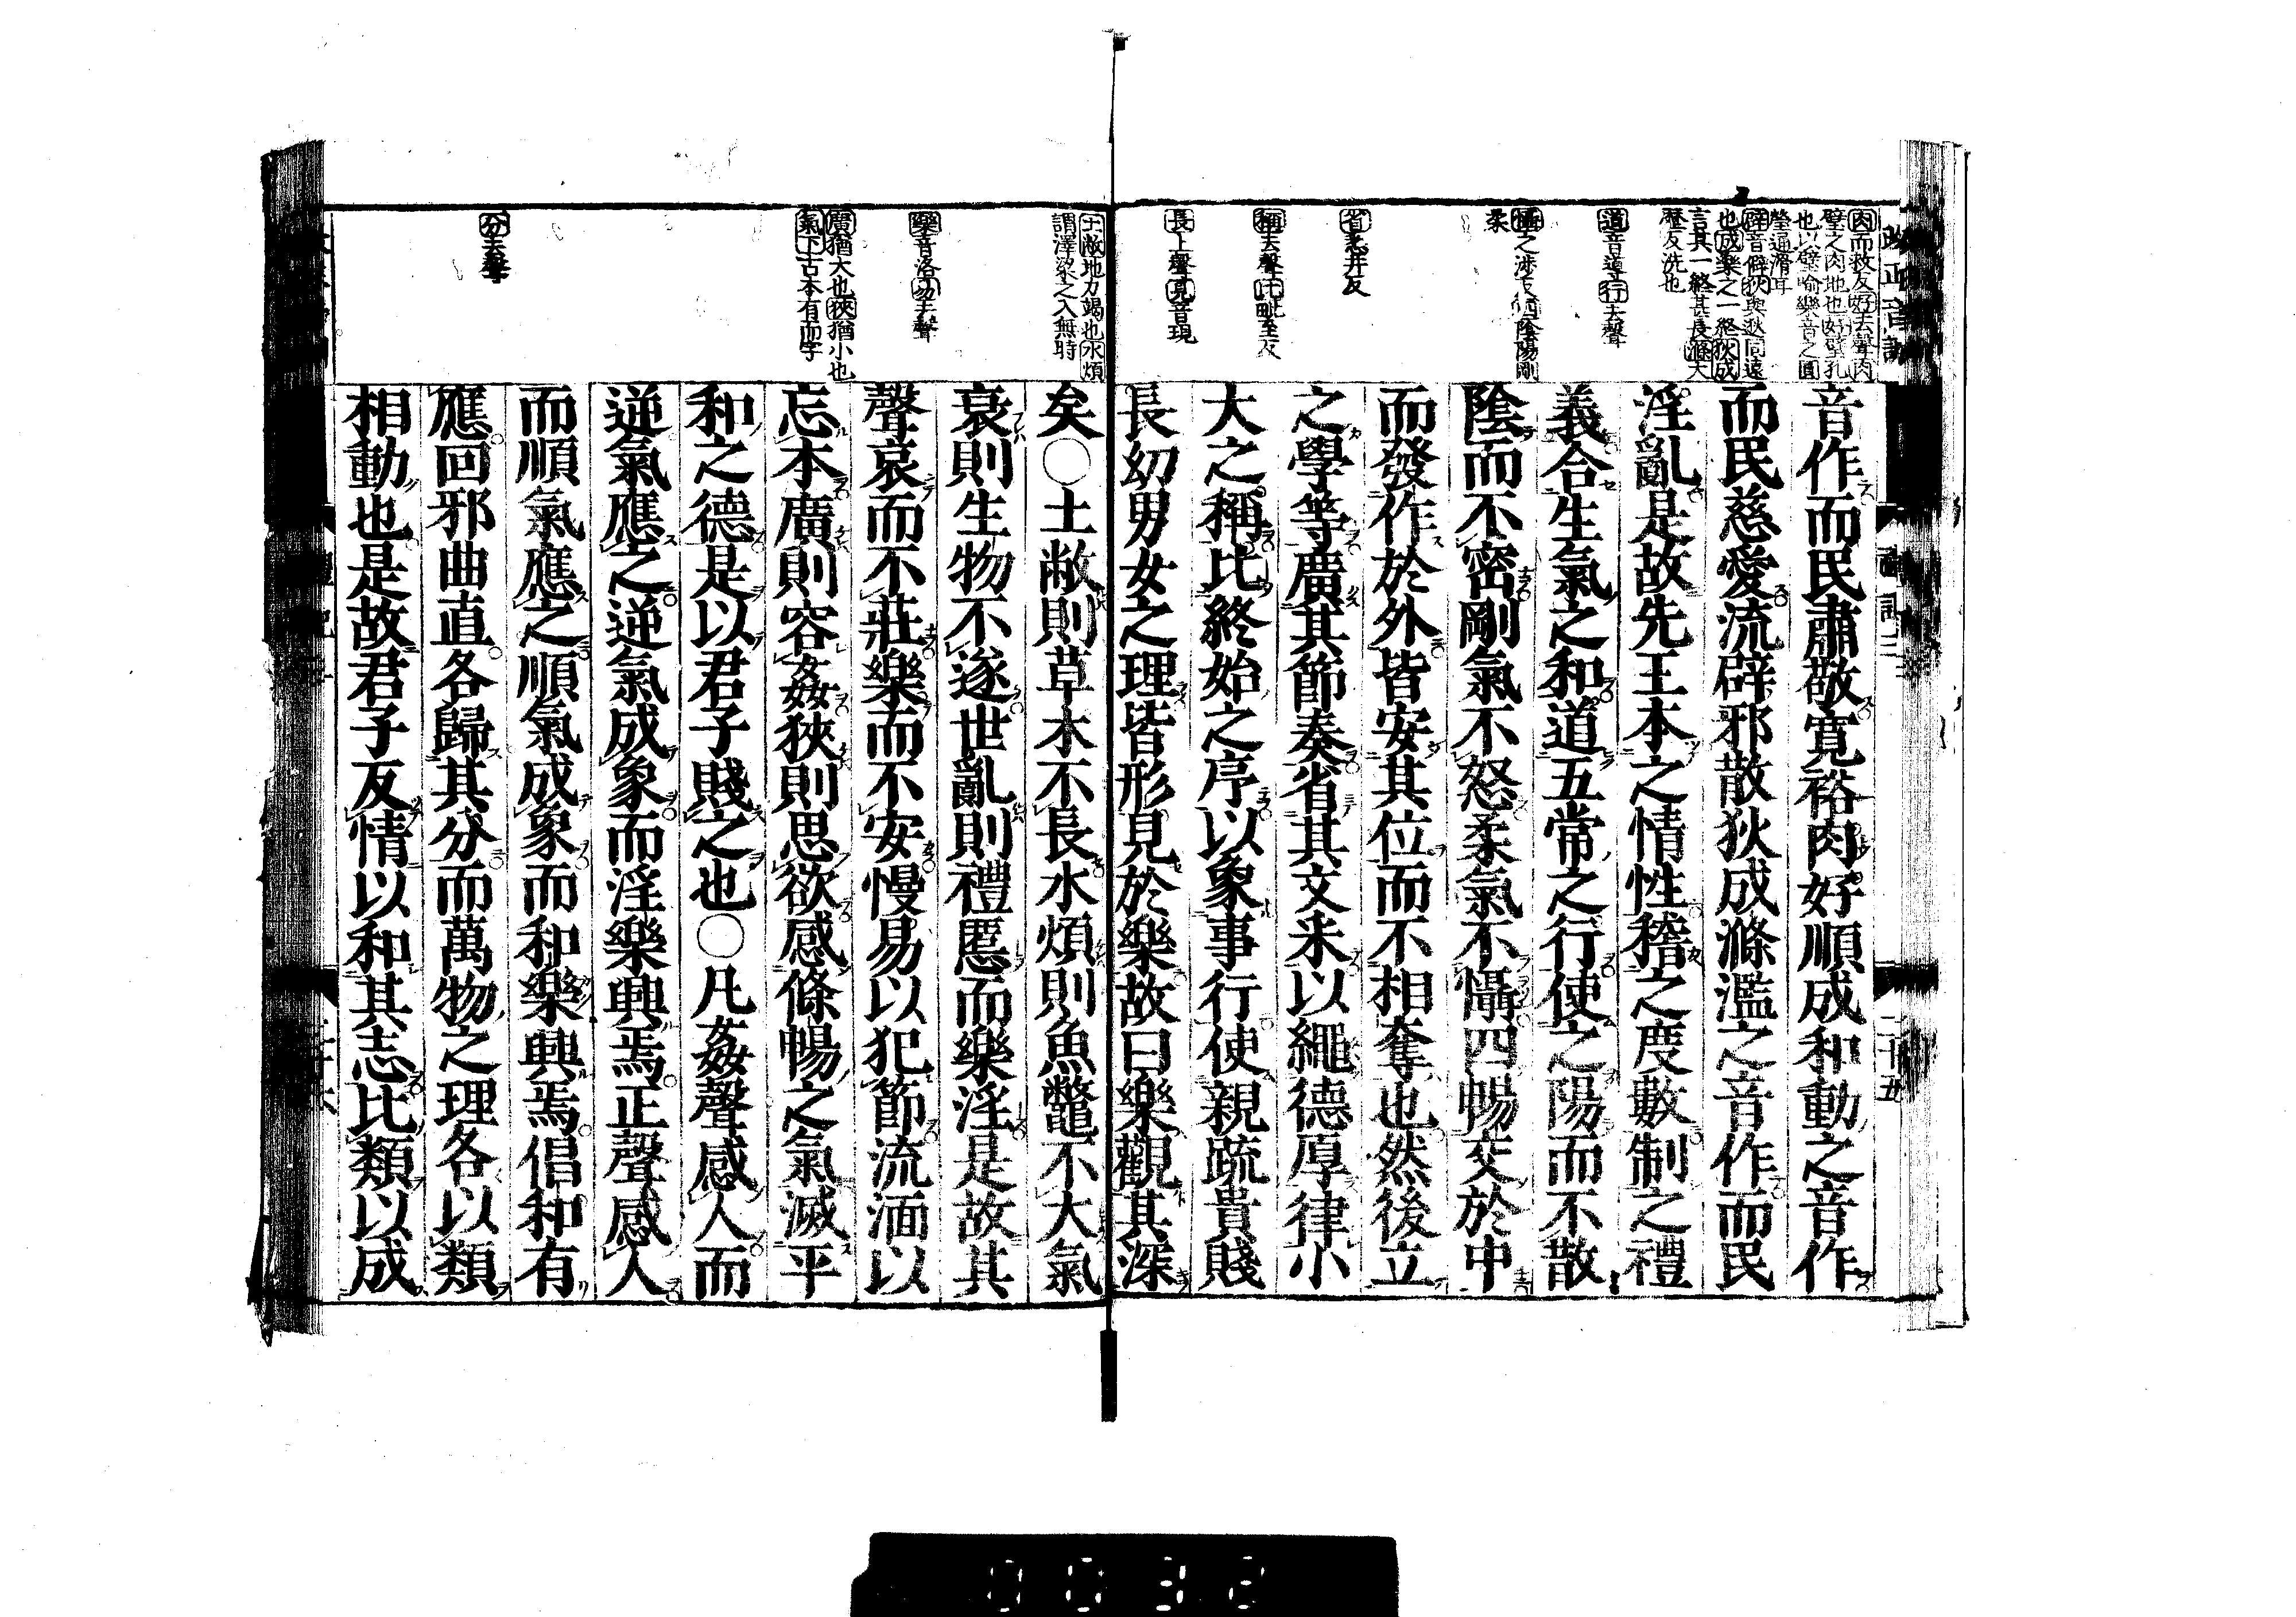 改正音訓
禮記三
二十五
肉而救反好去聲肉
璧之肉地也好璧孔
也以璧喻樂音之圓
瑩通滑耳
辟音僻狄與逖同遠
也成樂之一終狄成
言其一終甚長滌大
歷反洗也
道音導行去聲
懾之涉反四陰陽剛
柔
省悉井反
稱去聲比毗至反
長上聲見音現
音作而民肅敬寬裕肉好順成和動之音作
而民慈愛流辟邪散狄成滌濫之音作而民
淫亂是故先王本之情性稽之度數制之禮
義合生氣之和道五常之行使之陽而不散
陰而不密剛氣不怒柔氣不懾四暢交於中
而發作於外皆安其位而不相奪也然後立
之學等廣其節奏省其文采以繩德厚律小
大之稱比終始之序以象事行使親疏貴賤
長幼男女之理皆形見於樂故曰樂觀其深
土敝地力竭也水煩
謂澤梁之入無時
樂音洛易去聲
廣猶大也狹猶小也
氣下古本有而字
分去聲
矣○土敝則草木不長水煩則魚鼈不大氣
衰則生物不遂世亂則禮慝而樂淫是故其
聲哀而不莊樂而不安慢易以犯節流湎以
忘本廣則容姦狹則思欲感條暢之氣滅平
和之德是以君子賤之也○凡姦聲感人而
逆氣應之逆氣成象而淫樂興焉正聲感人
而順氣應之順氣成象而和樂興焉倡和有
應回邪曲直各歸其分而萬物之理各以類
相動也是故君子反情以和其志比類以成